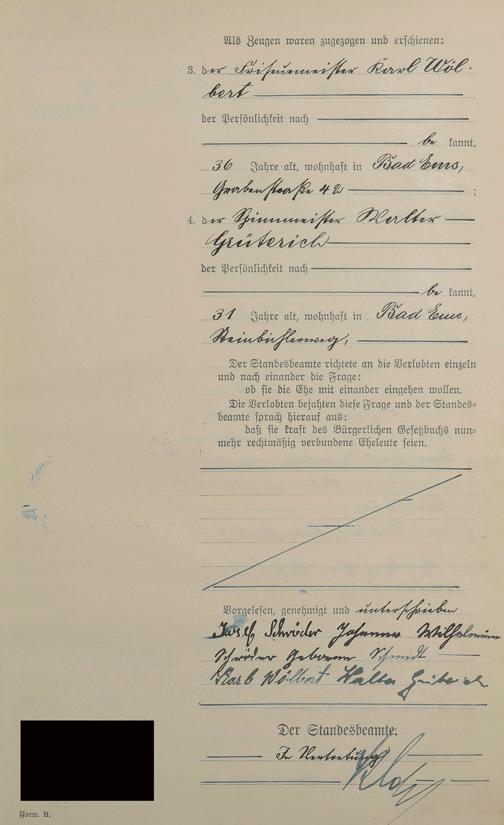 Als Zeugen waren zugezogen und erschienen:
3. der Friseurmeister Karl Wöl-
bert
der Persönlichkeit nach
be kannt,
36 Jahre alt, wohnhaft in Bad Ems,
Grabenstraße 42 ;
4. der Spinnmeister Walter
Grüterich
der Persönlichkeit nach
be kannt,
31 Jahre alt, wohnhaft in Bad Ems,
Der Standesbeamte richtete an die Verlobten einzeln
und nach einander die Frage:
ob sie die Ehe mit einander eingehen wollen.
Die Verlobten bejahten diese Frage und der Standes-
beamte sprach hierauf aus:
daß sie kraft des Bürgerlichen Gesetzbuchs nun-
mehr rechtmäßig verbundene Eheleute seien.
Vorgelesen, genehmigt und unterschrieben
Josef Schröder Johanna Wilhelmine
Schröder geborene Schmidt
Karl Wölbert Walter Grüterich
Der Standesbeamte.
In Vertretung
Form. B.